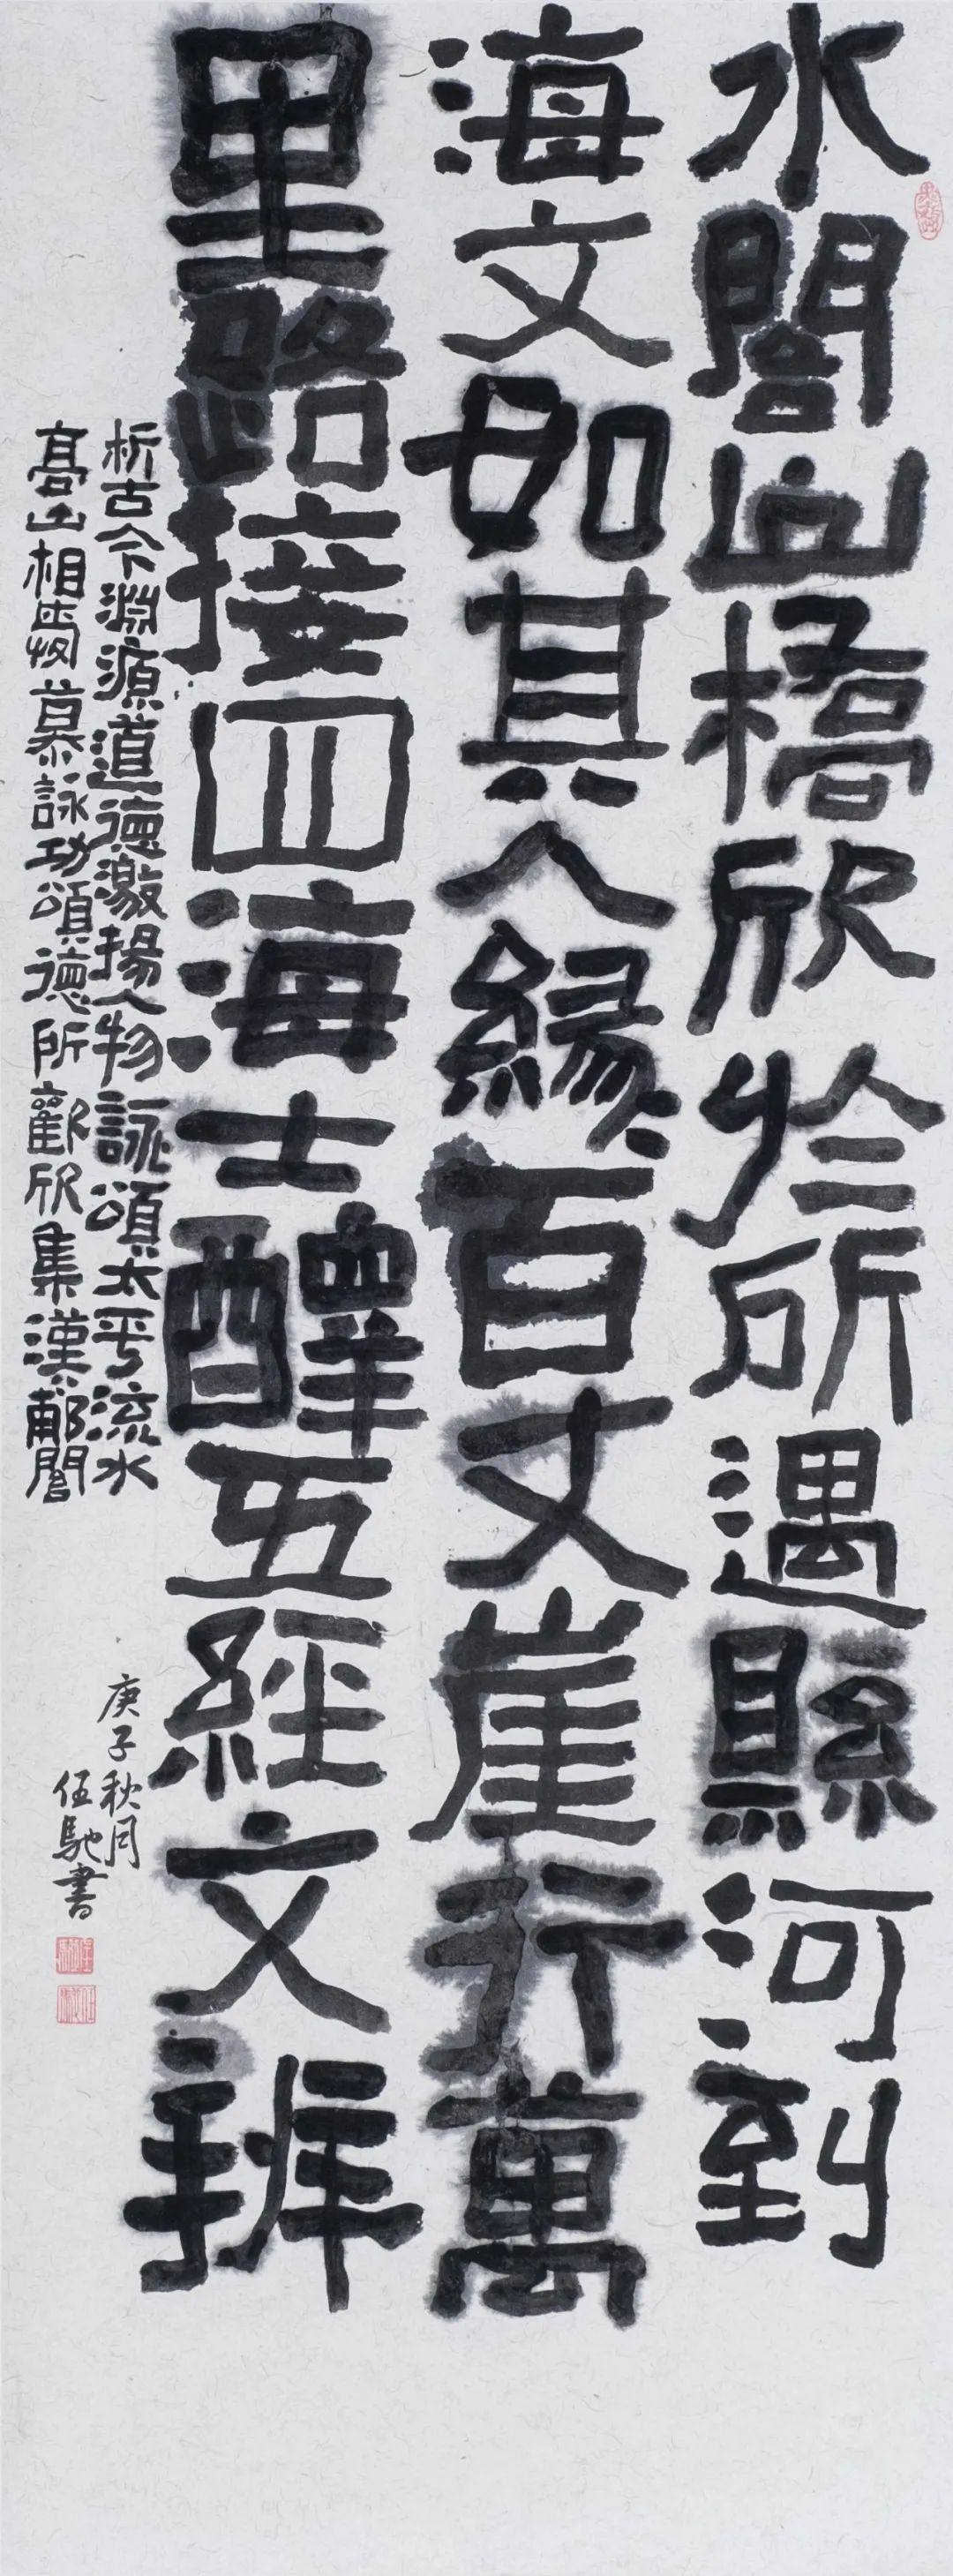 水閣山橋欣於所遇縣河到
海文如其人緣百丈崖行萬
里路接四海士醳五經文辨
析古今淵源道德激揚人物詠頌太平流水
高山相慕詠功頌德所歡欣集漢郙閣
庚子秋月
伍馳書